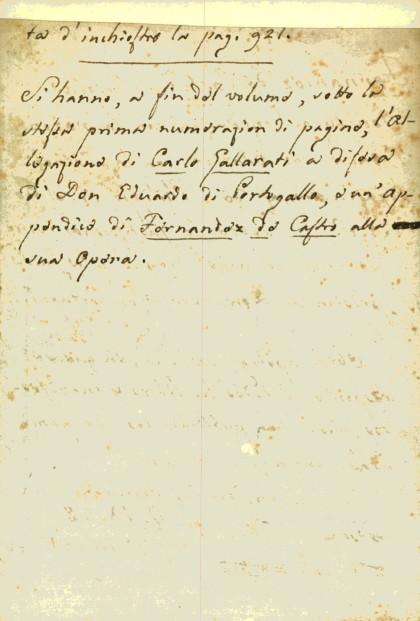 ta d'inchiostro la pag. 921.
Si hanno, a fin del volume, sotto la
stessa prima numerazion di pagine, l'al-
legazione di Carlo Gallarati a difesa
di Don Eduardo di Portogallo, e un'ap-
pendice di Fernandez de Castro alla
sua Opera.